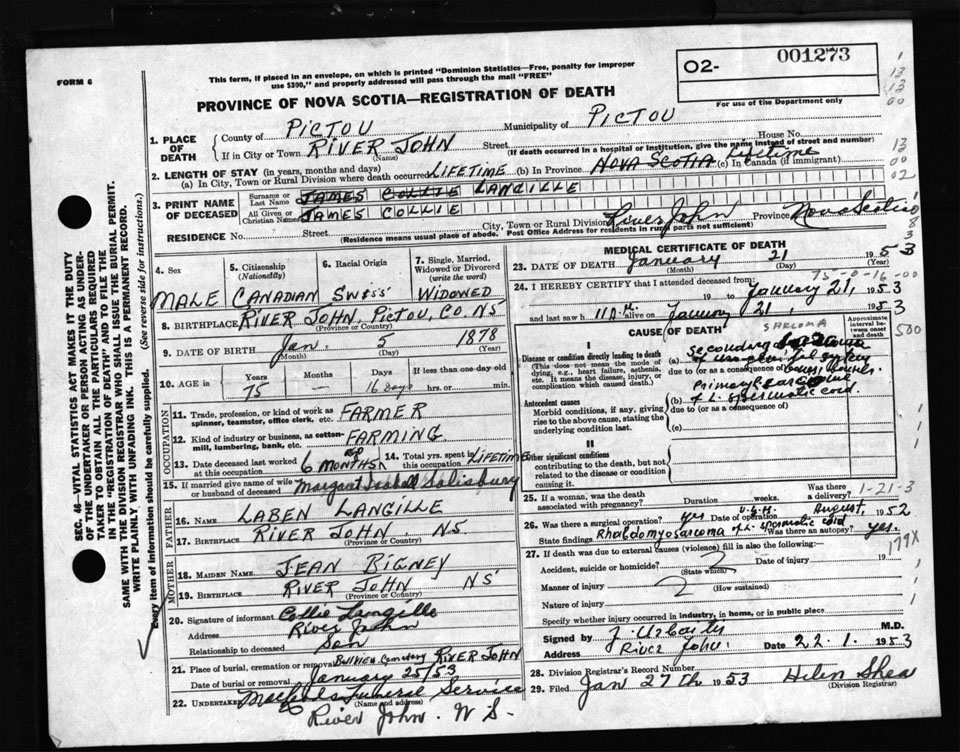 FORM 6
This form, if placed in an envelope, on which is printed "Dominion Statistics—Free, penalty for improper
use $300," and properly addressed will pass through the mail "FREE"
PROVINCE OF NOVA SCOTIA—REGISTRATION OF DEATH
O2- 001273
For use of the Department only
1. PLACE OF DEATH
County of PICTOU Municipality of PICTOU
If in City or Town RIVER JOHN (Name) Street House No.
(If death occurred in a hospital or institution, give the name instead of street and number)
2. LENGTH OF STAY (in years, months and days)
(a) In City, Town or Rural Division where death occurred LIFETIME (b) In Province NOVA SCOTIA Lifetime (c) In Canada (if immigrant)
3. PRINT NAME OF DECEASED
Surname or Last Name JAMES COLLIE LANGILLE
All Given or Christian Names JAMES COLLIE
RESIDENCE No. Street City, Town or Rural Division River John Province Nova Scotia
(Residence means usual place of abode. Post Office Address for residents in rural parts not sufficient)
4. Sex MALE
5. Citizenship (Nationality) CANADIAN
6. Racial Origin SWISS
7. Single, Married, Widowed or Divorced (write the word) WIDOWED
8. BIRTHPLACE RIVER JOHN, PICTOU, CO. NS
(Province or Country)
9. DATE OF BIRTH Jan. 5 1878
(Month) (Day) (Year)
10. AGE in Years Months Days If less than one day-old
75 — 16 Days hrs. or min.
OCCUPATION
11. Trade, profession, or kind of work as spinner, teamster, office clerk, etc. FARMER
12. Kind of industry or business, as cotton-mill, lumbering, bank, etc. FARMING
13. Date deceased last worked at this occupation 6 MONTHS AGO
14. Total yrs. spent in this occupation LIFETIME
15. If married give name of wife or husband of deceased Margaret Isabell Salisbury
FATHER
16. NAME LABEN LANGILLE
17. BIRTHPLACE RIVER JOHN, NS
(Province or Country)
MOTHER
18. MAIDEN NAME JEAN BIGNEY
19. BIRTHPLACE RIVER JOHN NS
(Province or Country)
20. Signature of informant Collie Langille
Address River John
Relationship to deceased Son
21. Place of burial, cremation or removal Cemetery RIVER JOHN
Date of burial or removal January 25/53
22. UNDERTAKER Funeral Service
(Name and address)
River John. N S.
MEDICAL CERTIFICATE OF DEATH
23. DATE OF DEATH January 21 1953
(Month) (Day) (Year)
75-0-16-00
24. I HEREBY CERTIFY that I attended deceased from:
19 to January 21, 1953
and last saw h alive on January 21, 1953
CAUSE OF DEATH
Approximate interval between onset and death
SARCOMA
I
Disease or condition directly leading to death
(This does not mean the mode of dying, e.g., heart failure, asthenia, etc. It means the disease, injury, or complication which caused death.)
(a) Secondary
due to (or as a consequence of)
Antecedent causes
Morbid conditions, if any, giving rise to the above cause, stating the underlying condition last.
(b) of L. spermatic cord.
due to (or as a consequence of)
(c)
II
Other significant conditions
contributing to the death, but not related to the disease or condition causing it.
500
25. If a woman, was the death associated with pregnancy? Duration weeks. Was there a delivery?
1-21-3
26. Was there a surgical operation? yes Date of operation August, 1952
State findings Rhabdomyosarcoma of L. spermatic cord Was there an autopsy? yes.
27. If death was due to external causes (violence) fill in also the following:—
Accident, suicide or homicide? (State which) Date of injury 19
179X
Manner of injury
(How sustained)
Nature of injury
Specify whether injury occurred in industry, in home, or in public place
Signed by M.D.
Address River John Date 22.1. 1953
28. Division Registrar's Record Number
29. Filed Jan 27th 1953 Helen Shea
(Division Registrar)
SEC. 46—VITAL STATISTICS ACT MAKES IT THE DUTY
OF THE UNDERTAKER OR PERSON ACTING AS UNDERTAKER
TO OBTAIN ALL THE PARTICULARS REQUIRED
IN THE "REGISTRATION OF DEATH" AND TO FILE THE
SAME WITH THE DIVISION REGISTRAR WHO SHALL ISSUE THE BURIAL PERMIT.
WRITE PLAINLY WITH UNFADING INK. THIS IS A PERMANENT RECORD.
Every item of information should be carefully supplied. (See reverse side for instructions.)